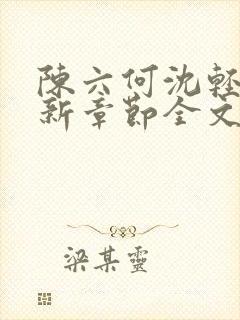 陳六何沈輕
新章節全文
梁某靈